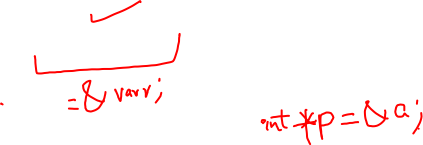 =& varr;
int *p = &a;